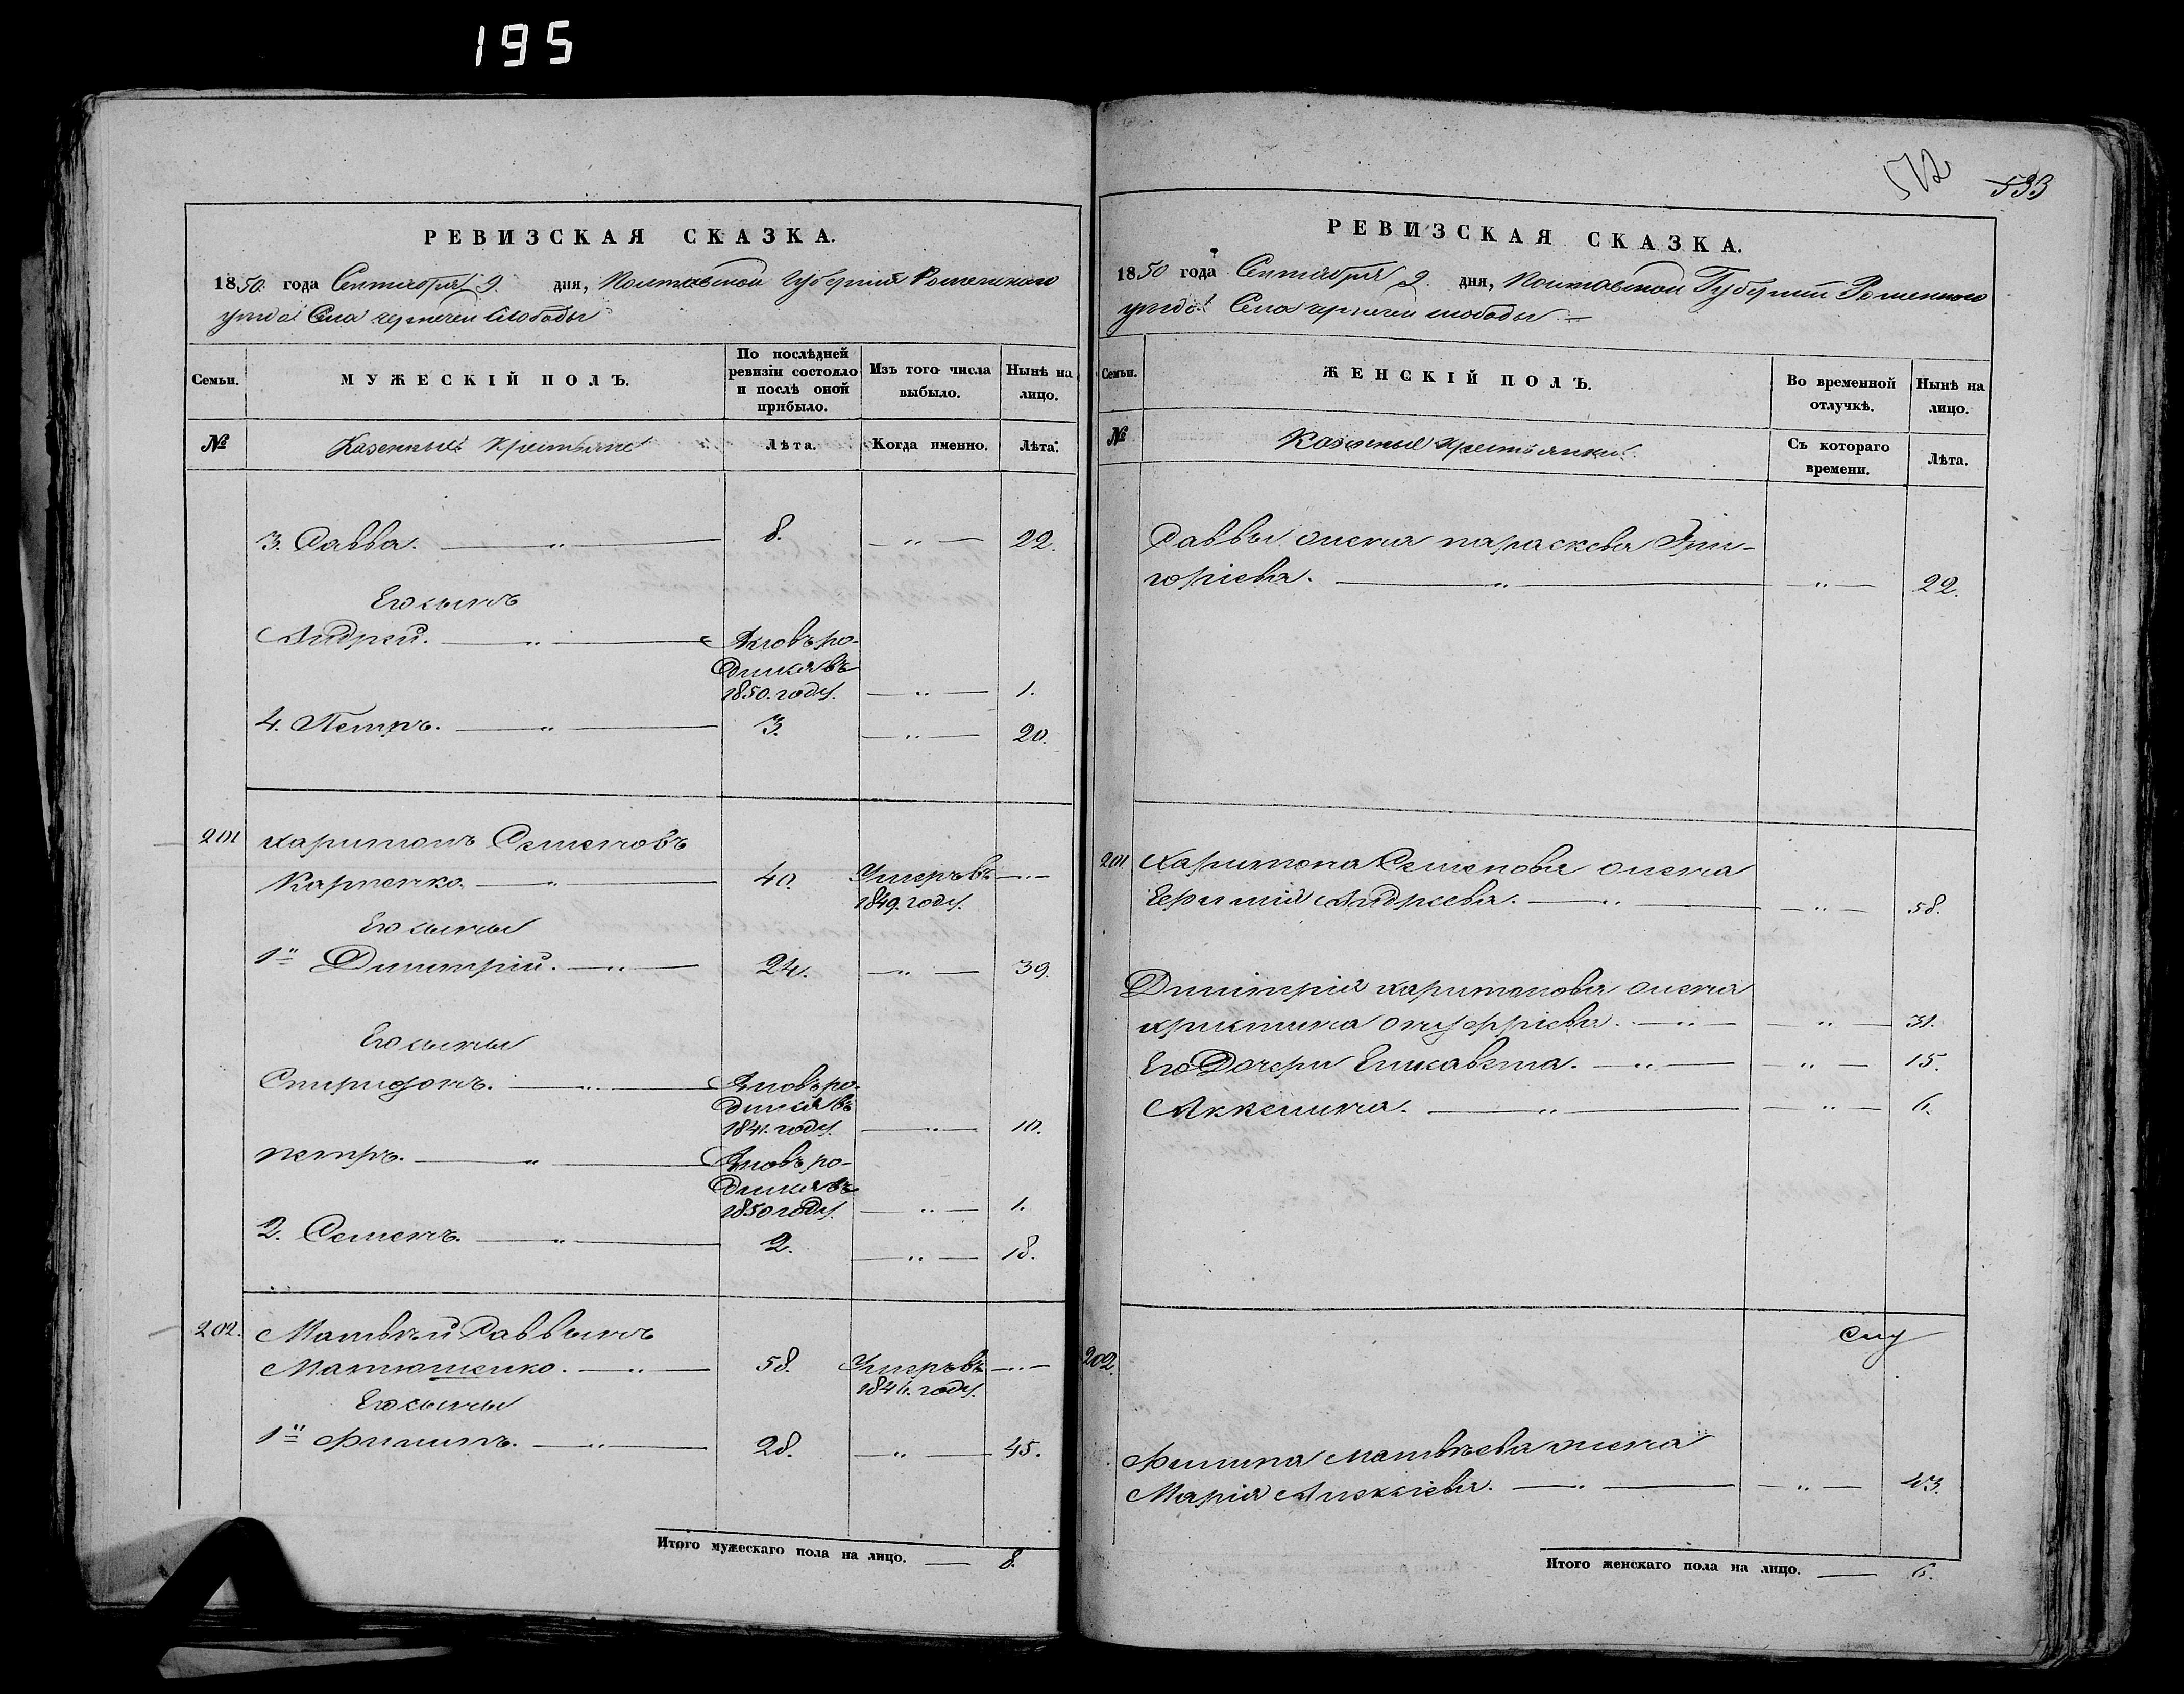 195
РЕВИЗСКАЯ СКАЗКА.
1850. года Сентября 9. дня, Полтавской Губернии Роменскаго
уезда Села чернечей слободы
Семьи.
МУЖЕСКІЙ ПОЛЪ.
По послѣдней ревизіи состояло и послѣ оной прибыло.
Изъ того числа выбыло.
Нынѣ на лицо.
№
Казенные Крестьяне
Лѣта.
Когда именно.
Лѣта.
3. Савва. — " — 8. — " — 22.
Его сынъ
Андрей. — " — Вновь ро-
дился въ
1850. году. — " — 1.
4. Петръ. — " — 3. — " — 20.
201 харитонъ Семеновъ
Карпенко. — " — 40. Умеръ въ — " —
1849. году.
Его сыны
1й Димитрій. — " — 24. — " — 39.
Его сыны
Спиридонъ. — " — Вновь ро-
дился въ
1841. году. — " — 10.
петръ. — " — Вновь ро-
дился въ
1850 году. — " — 1.
2. Семенъ. — " — 2. — " — 18.
202. Матвѣй Саввинъ
Матюшенко. — " — 58. Умеръ въ — " —
1846. году.
Его сыны
1й Филипъ. — " — 28. — " — 45.
Итого мужескаго пола на лицо. — 8.
572 533
РЕВИЗСКАЯ СКАЗКА.
1850 года Сентября 9. дня, Полтавской Губерніи Роменскаго
уезда Села чернечей слободы
Семьи.
ЖЕНСКІЙ ПОЛЪ.
Во временной отлучкѣ.
Нынѣ на лицо.
№
Казенные крестьянки.
Съ котораго времени.
Лѣта.
Саввы жена параскева Гри-
горіева. — " — " — 22.
201. Харитона Семенова жена
Андреева. — " — " — 58.
Димитрія харитонова жена
христина онуфріева. — " — " — 31.
Его Дочери Елисавета. — " — " — 15.
Аксенина. — " — " — 6.
202.
Филипа матвѣева жена
Марія Алексіева. — " — " — 43.
Итого женскаго пола на лицо. — 6.